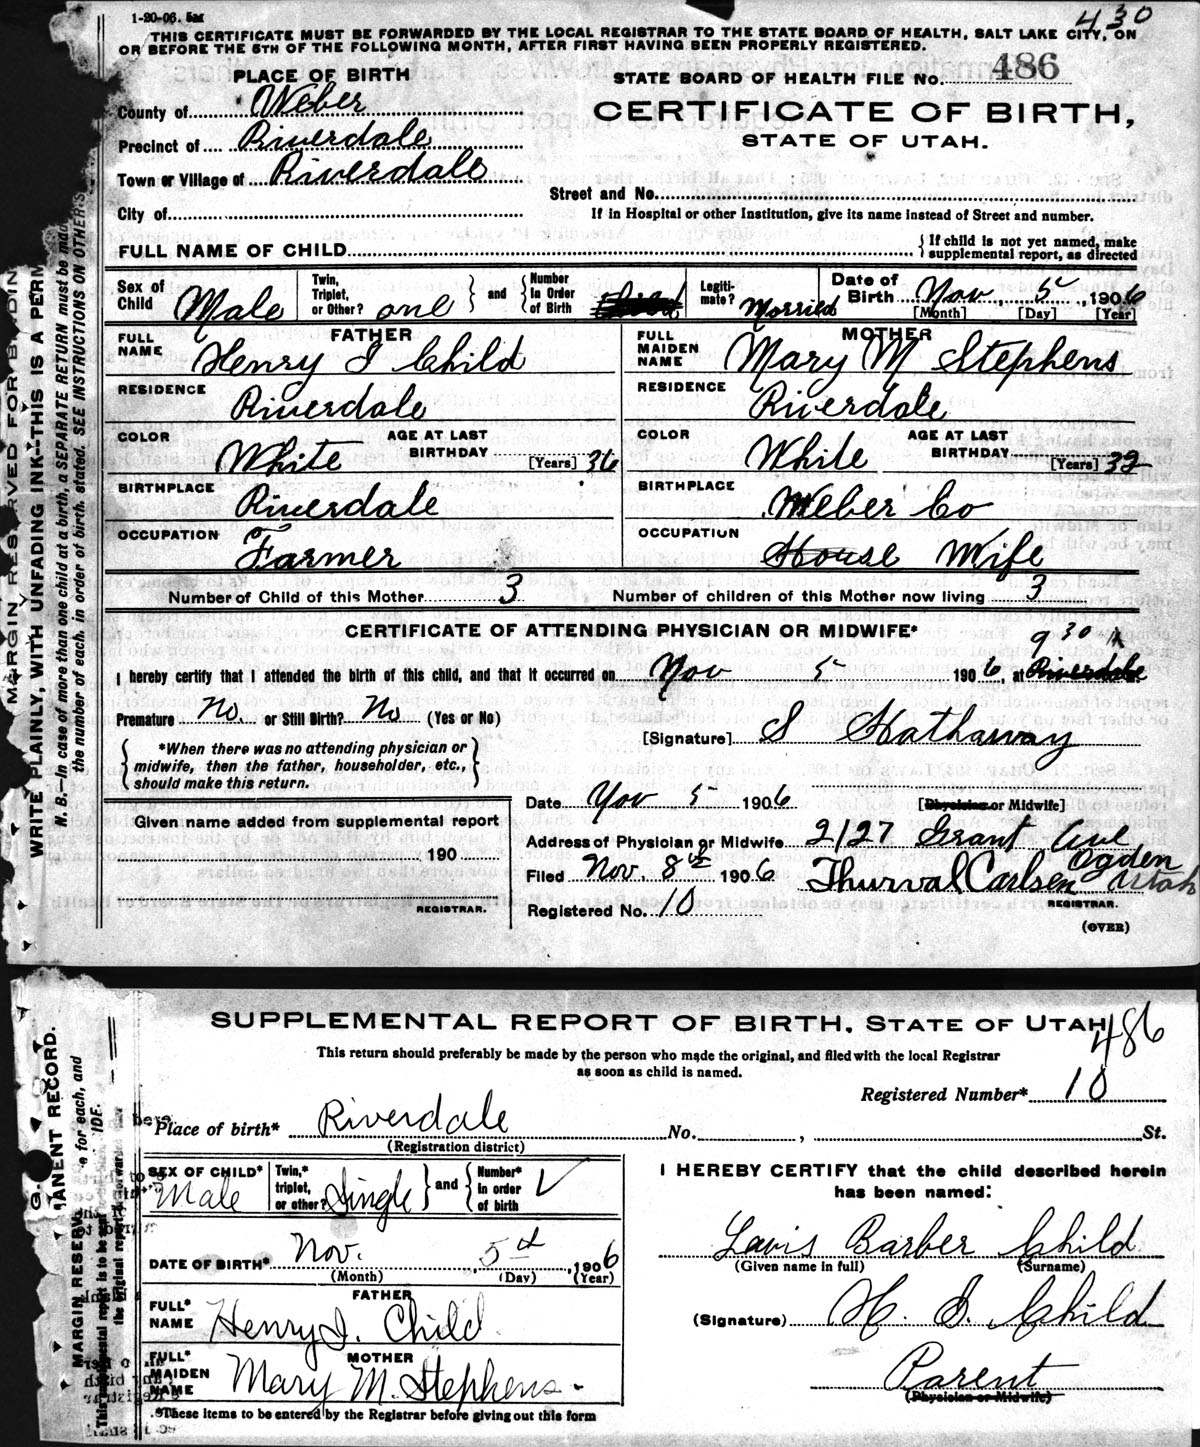 1-20-06. 5M
430
THIS CERTIFICATE MUST BE FORWARDED BY THE LOCAL REGISTRAR TO THE STATE BOARD OF HEALTH, SALT LAKE CITY, ON
OR BEFORE THE 5TH OF THE FOLLOWING MONTH, AFTER FIRST HAVING BEEN PROPERLY REGISTERED.
PLACE OF BIRTH
STATE BOARD OF HEALTH FILE No. 486
County of Weber
CERTIFICATE OF BIRTH,
Precinct of Riverdale
STATE OF UTAH.
Town or Village of Riverdale
Street and No.
City of
If in Hospital or other Institution, give its name instead of Street and number.
FULL NAME OF CHILD
If child is not yet named, make
supplemental report, as directed
Sex of Child Male
Twin, Triplet, or Other? one and Number In Order of Birth
Legitimate? Married
Date of Birth Nov, 5, 1906
[Month] [Day] [Year]
FATHER
FULL NAME Henry I Child
MOTHER
FULL MAIDEN NAME Mary M Stephens
RESIDENCE Riverdale
RESIDENCE Riverdale
COLOR White AGE AT LAST BIRTHDAY [Years] 36
COLOR White AGE AT LAST BIRTHDAY [Years] 32
BIRTHPLACE Riverdale
BIRTHPLACE Weber Co
OCCUPATION Farmer
OCCUPATION House Wife
Number of Child of this Mother 3 Number of children of this Mother now living 3
CERTIFICATE OF ATTENDING PHYSICIAN OR MIDWIFE*
9 30
I hereby certify that I attended the birth of this child, and that it occurred on Nov 5 1906, at Riverdale
Premature No or Still Birth? No (Yes or No)
[Signature] S Hathaway
*When there was no attending physician or
midwife, then the father, householder, etc.,
should make this return.
Date Nov 5 1906
[Physician or Midwife]
Given name added from supplemental report
190
REGISTRAR.
Address of Physician or Midwife 2127 Grant Ave
Ogden Utah
Filed Nov. 8th 1906 Thurval Carlsen
REGISTRAR.
Registered No. 10
(OVER)
MARGIN RESERVED FOR BINDIN
WRITE PLAINLY, WITH UNFADING INK—THIS IS A PERM
N. B.—In case of more than one child at a birth, a SEPARATE RETURN must be mad
the number of each, in order of birth, stated. SEE INSTRUCTIONS ON OTHER S
SUPPLEMENTAL REPORT OF BIRTH, STATE OF UTAH
486
This return should preferably be made by the person who made the original, and filed with the local Registrar
as soon as child is named.
Registered Number* 10
Place of birth* Riverdale No. , St.
(Registration district)
SEX OF CHILD* Male
Twin,* triplet, or other? Single and Number* in order of birth
I HEREBY CERTIFY that the child described herein
has been named:
DATE OF BIRTH* Nov. 5th, 1906
(Month) (Day) (Year)
Lavis Barber Child
(Given name in full) (Surname)
FATHER
FULL* NAME Henry I. Child
(Signature) H. I. Child
MOTHER
FULL* MAIDEN NAME Mary M. Stephens.
Parent
(Physician or Midwife)
*These items to be entered by the Registrar before giving out this form
G.
ANENT RECORD.
e for each, and
IDE.
MARGIN RESERV